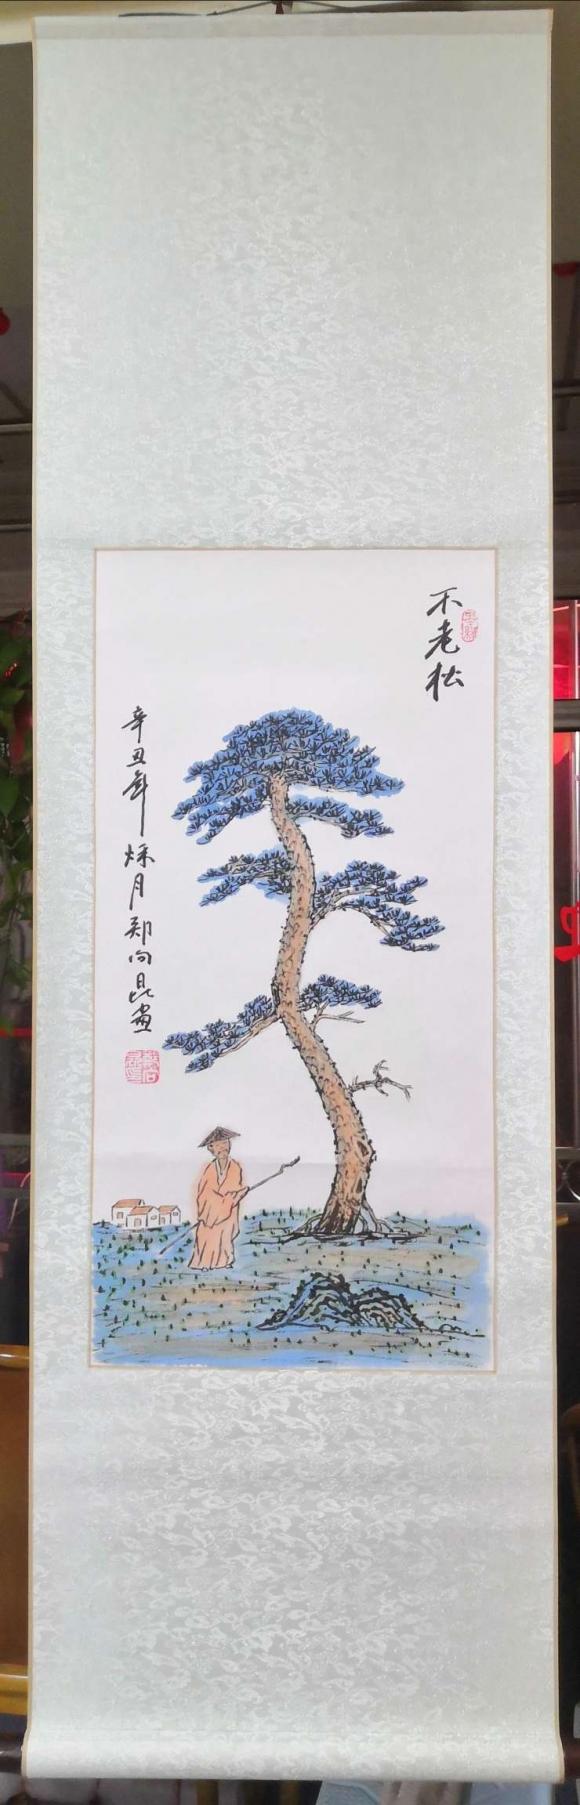 不老松
辛丑年秌月郑向昆画